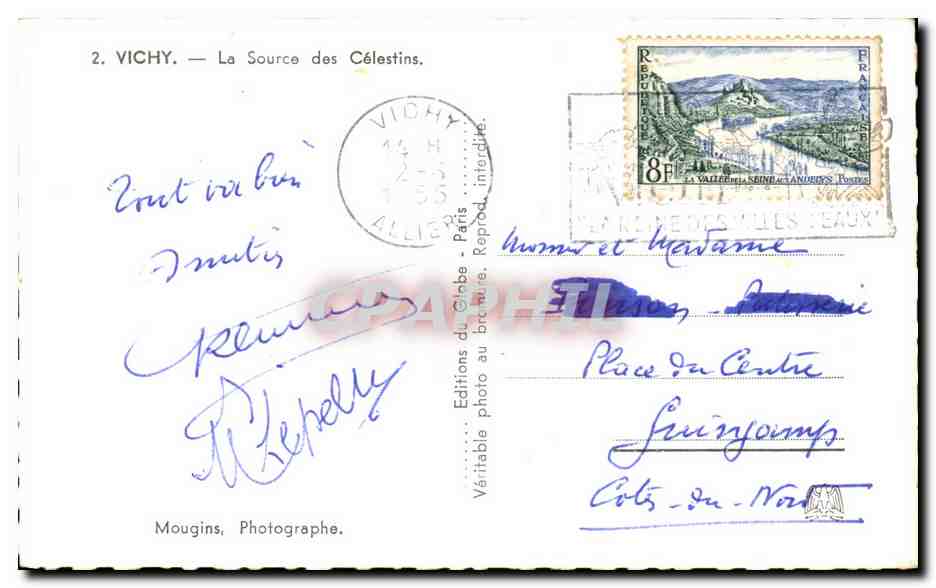 2. VICHY. — La Source des Célestins.
VICHY
ALLIER
REPUBLIQUE
FRANCAISE
8F
LA VALLÉE DE LA SEINE AUX ANDELYS POSTES
LA REINE DES VILLES D'EAUX
Tout va bien
Amitiés
Monsieur et Madame
Place du Centre
Guingamp
Côtes-du-Nord
Editions du Globe - Paris
Véritable photo au bromure. Reprod. interdite.
CPAPHIL
Mougins, Photographe.